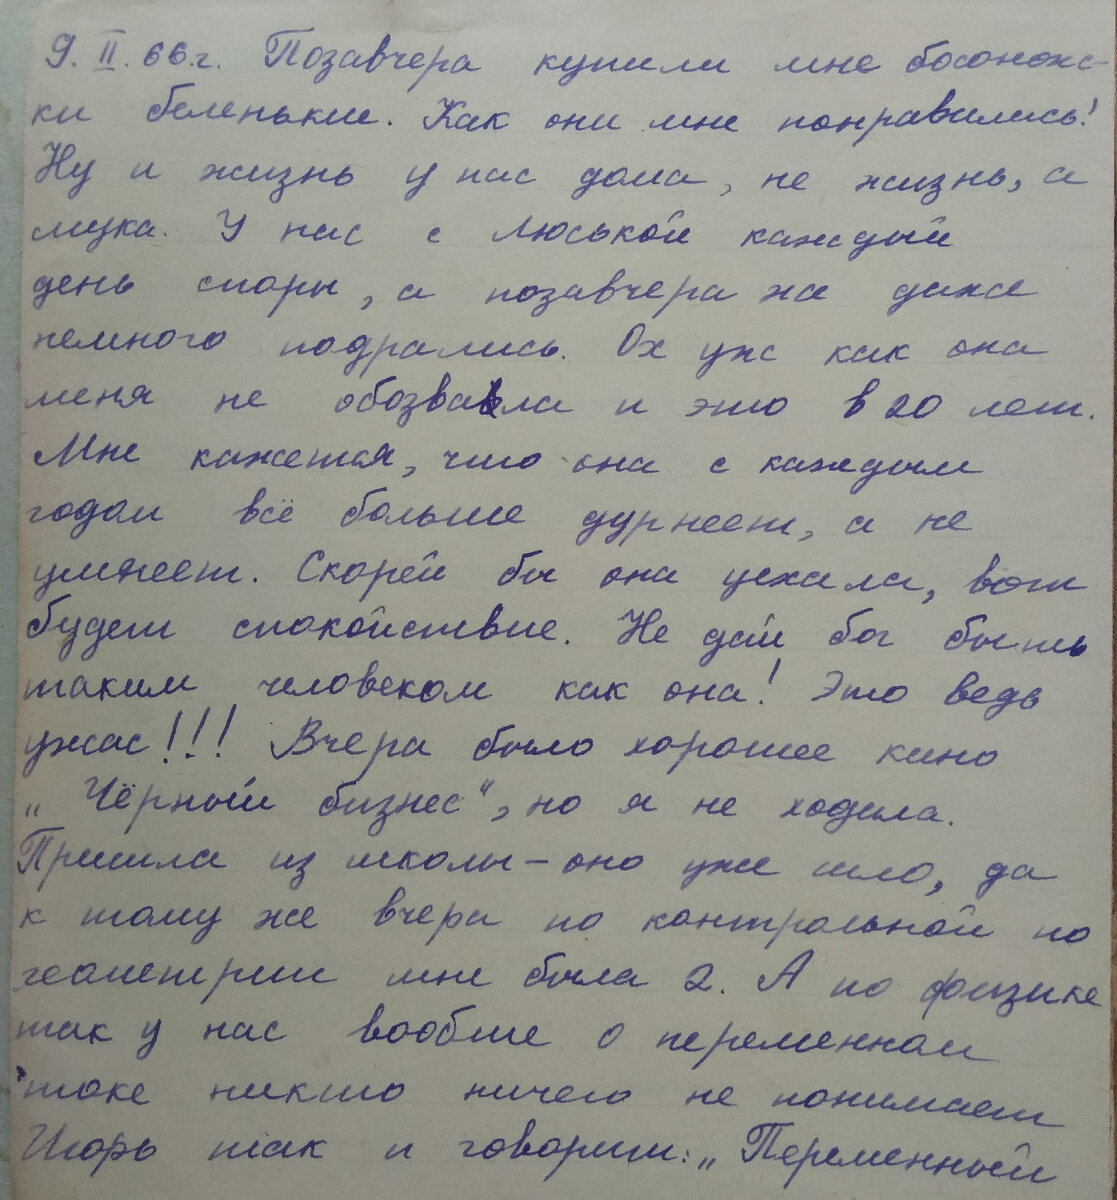 9. II. 66 г. Позавчера купили мне босонож-
ки беленькие. Как они мне понравились!
Ну и жизнь у нас дома, не жизнь, а
мука. У нас с Люськой каждый
день споры, а позавчера же даже
немного подрались. Ох уж как она
меня не обозвала и это в 20 лет.
Мне кажется, что она с каждым
годом всё больше дурнеет, а не
умнеет. Скорей бы она уехала, вот
будет спокойствие. Не дай бог быть
таким человеком как она! Это ведь
ужас!!! Вчера было хорошее кино
„Чёрный бизнес", но я не ходила.
Пришла из школы – оно уже шло, да
к тому же вчера по контрольной по
геометрии мне была 2. А по физике
так у нас вообше о переменном
токе никто ничего не понимает
Игорь так и говорит: „Переменный